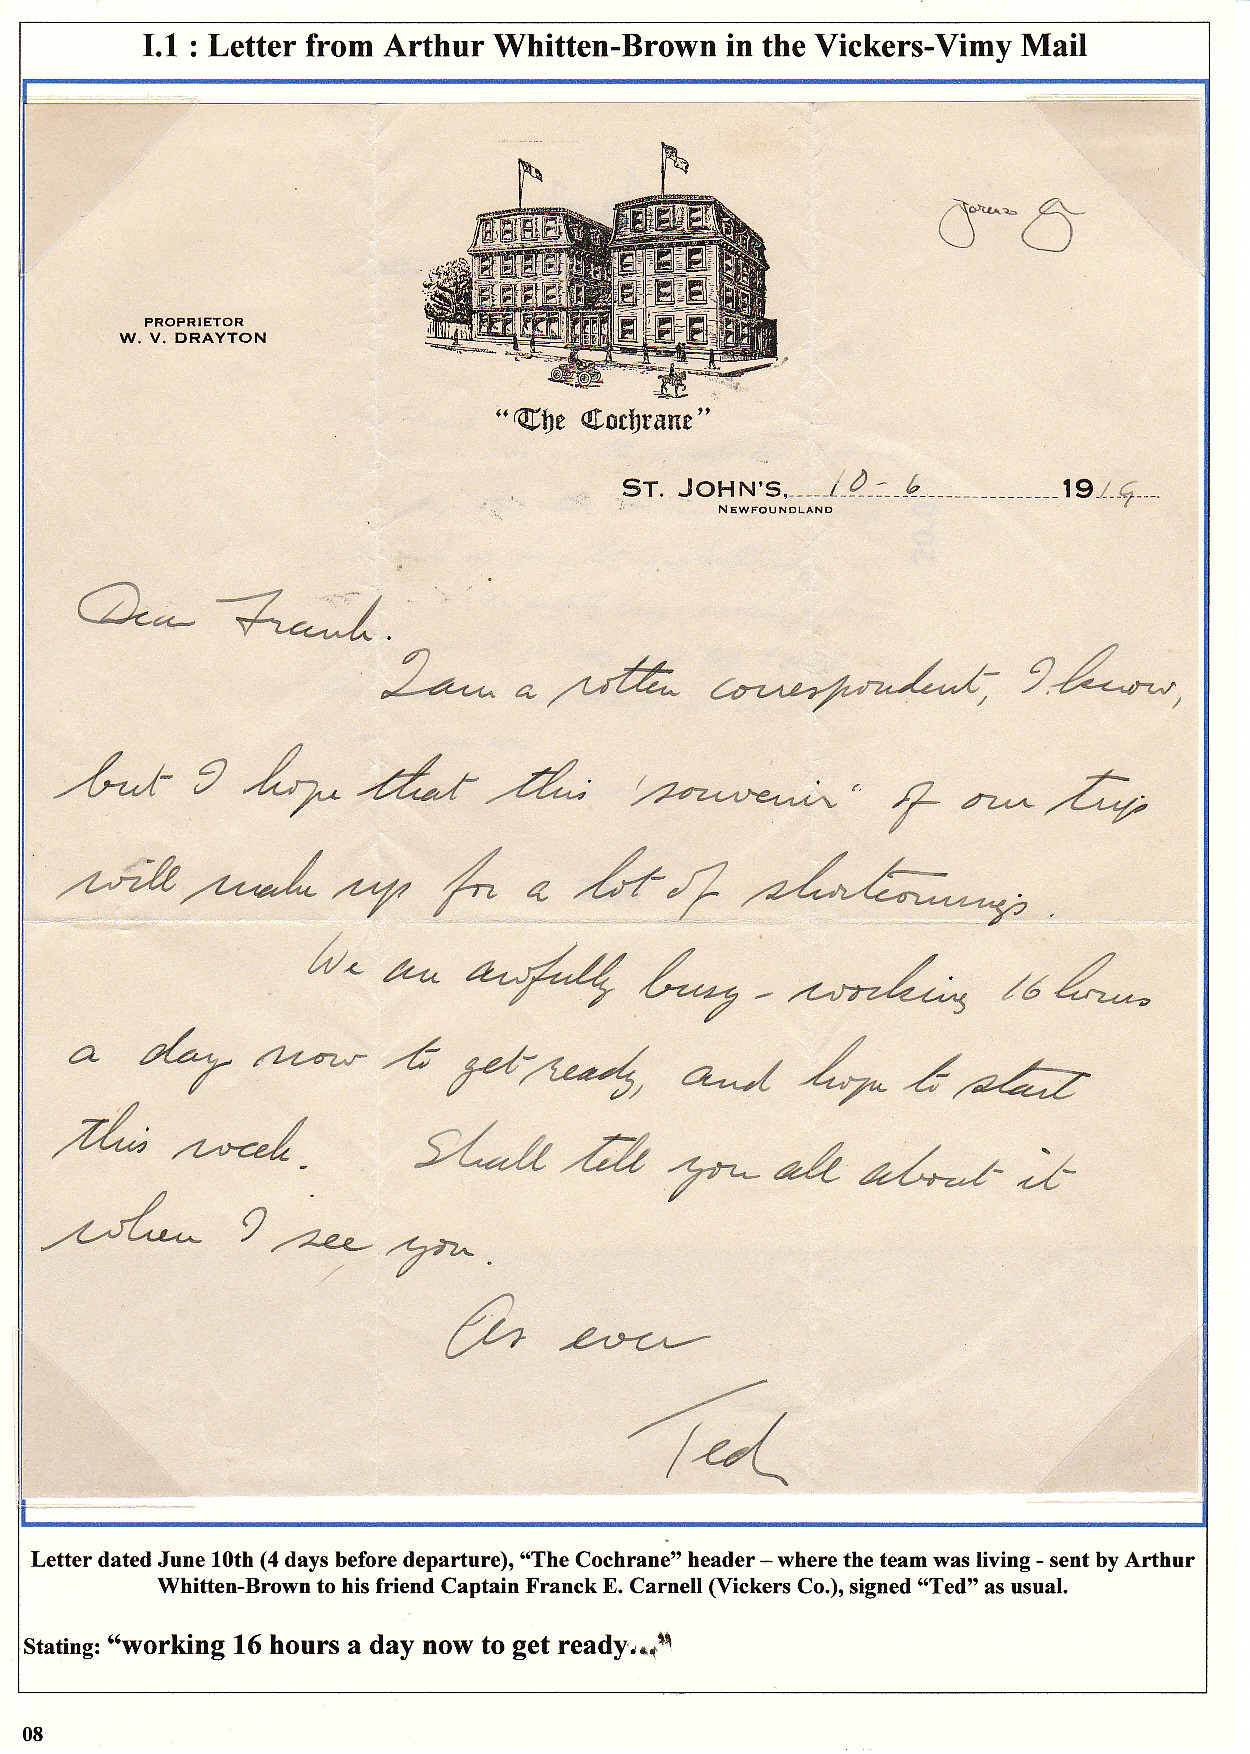 I.1 : Letter from Arthur Whitten-Brown in the Vickers-Vimy Mail
PROPRIETOR
W. V. DRAYTON
"The Cochrane"
ST. JOHN'S, 10-6 1919
NEWFOUNDLAND
Dear Frank.
I am a rotten correspondent, I know,
but I hope that this 'souvenir' of our trip
will make up for a lot of shortcomings.
We are awfully busy - working 16 hours
a day now to get ready, and hope to start
this week. Shall tell you all about it
when I see you.
As ever
Ted
Letter dated June 10th (4 days before departure), “The Cochrane” header – where the team was living - sent by Arthur
Whitten-Brown to his friend Captain Franck E. Carnell (Vickers Co.), signed “Ted” as usual.
Stating: “working 16 hours a day now to get ready...”
08